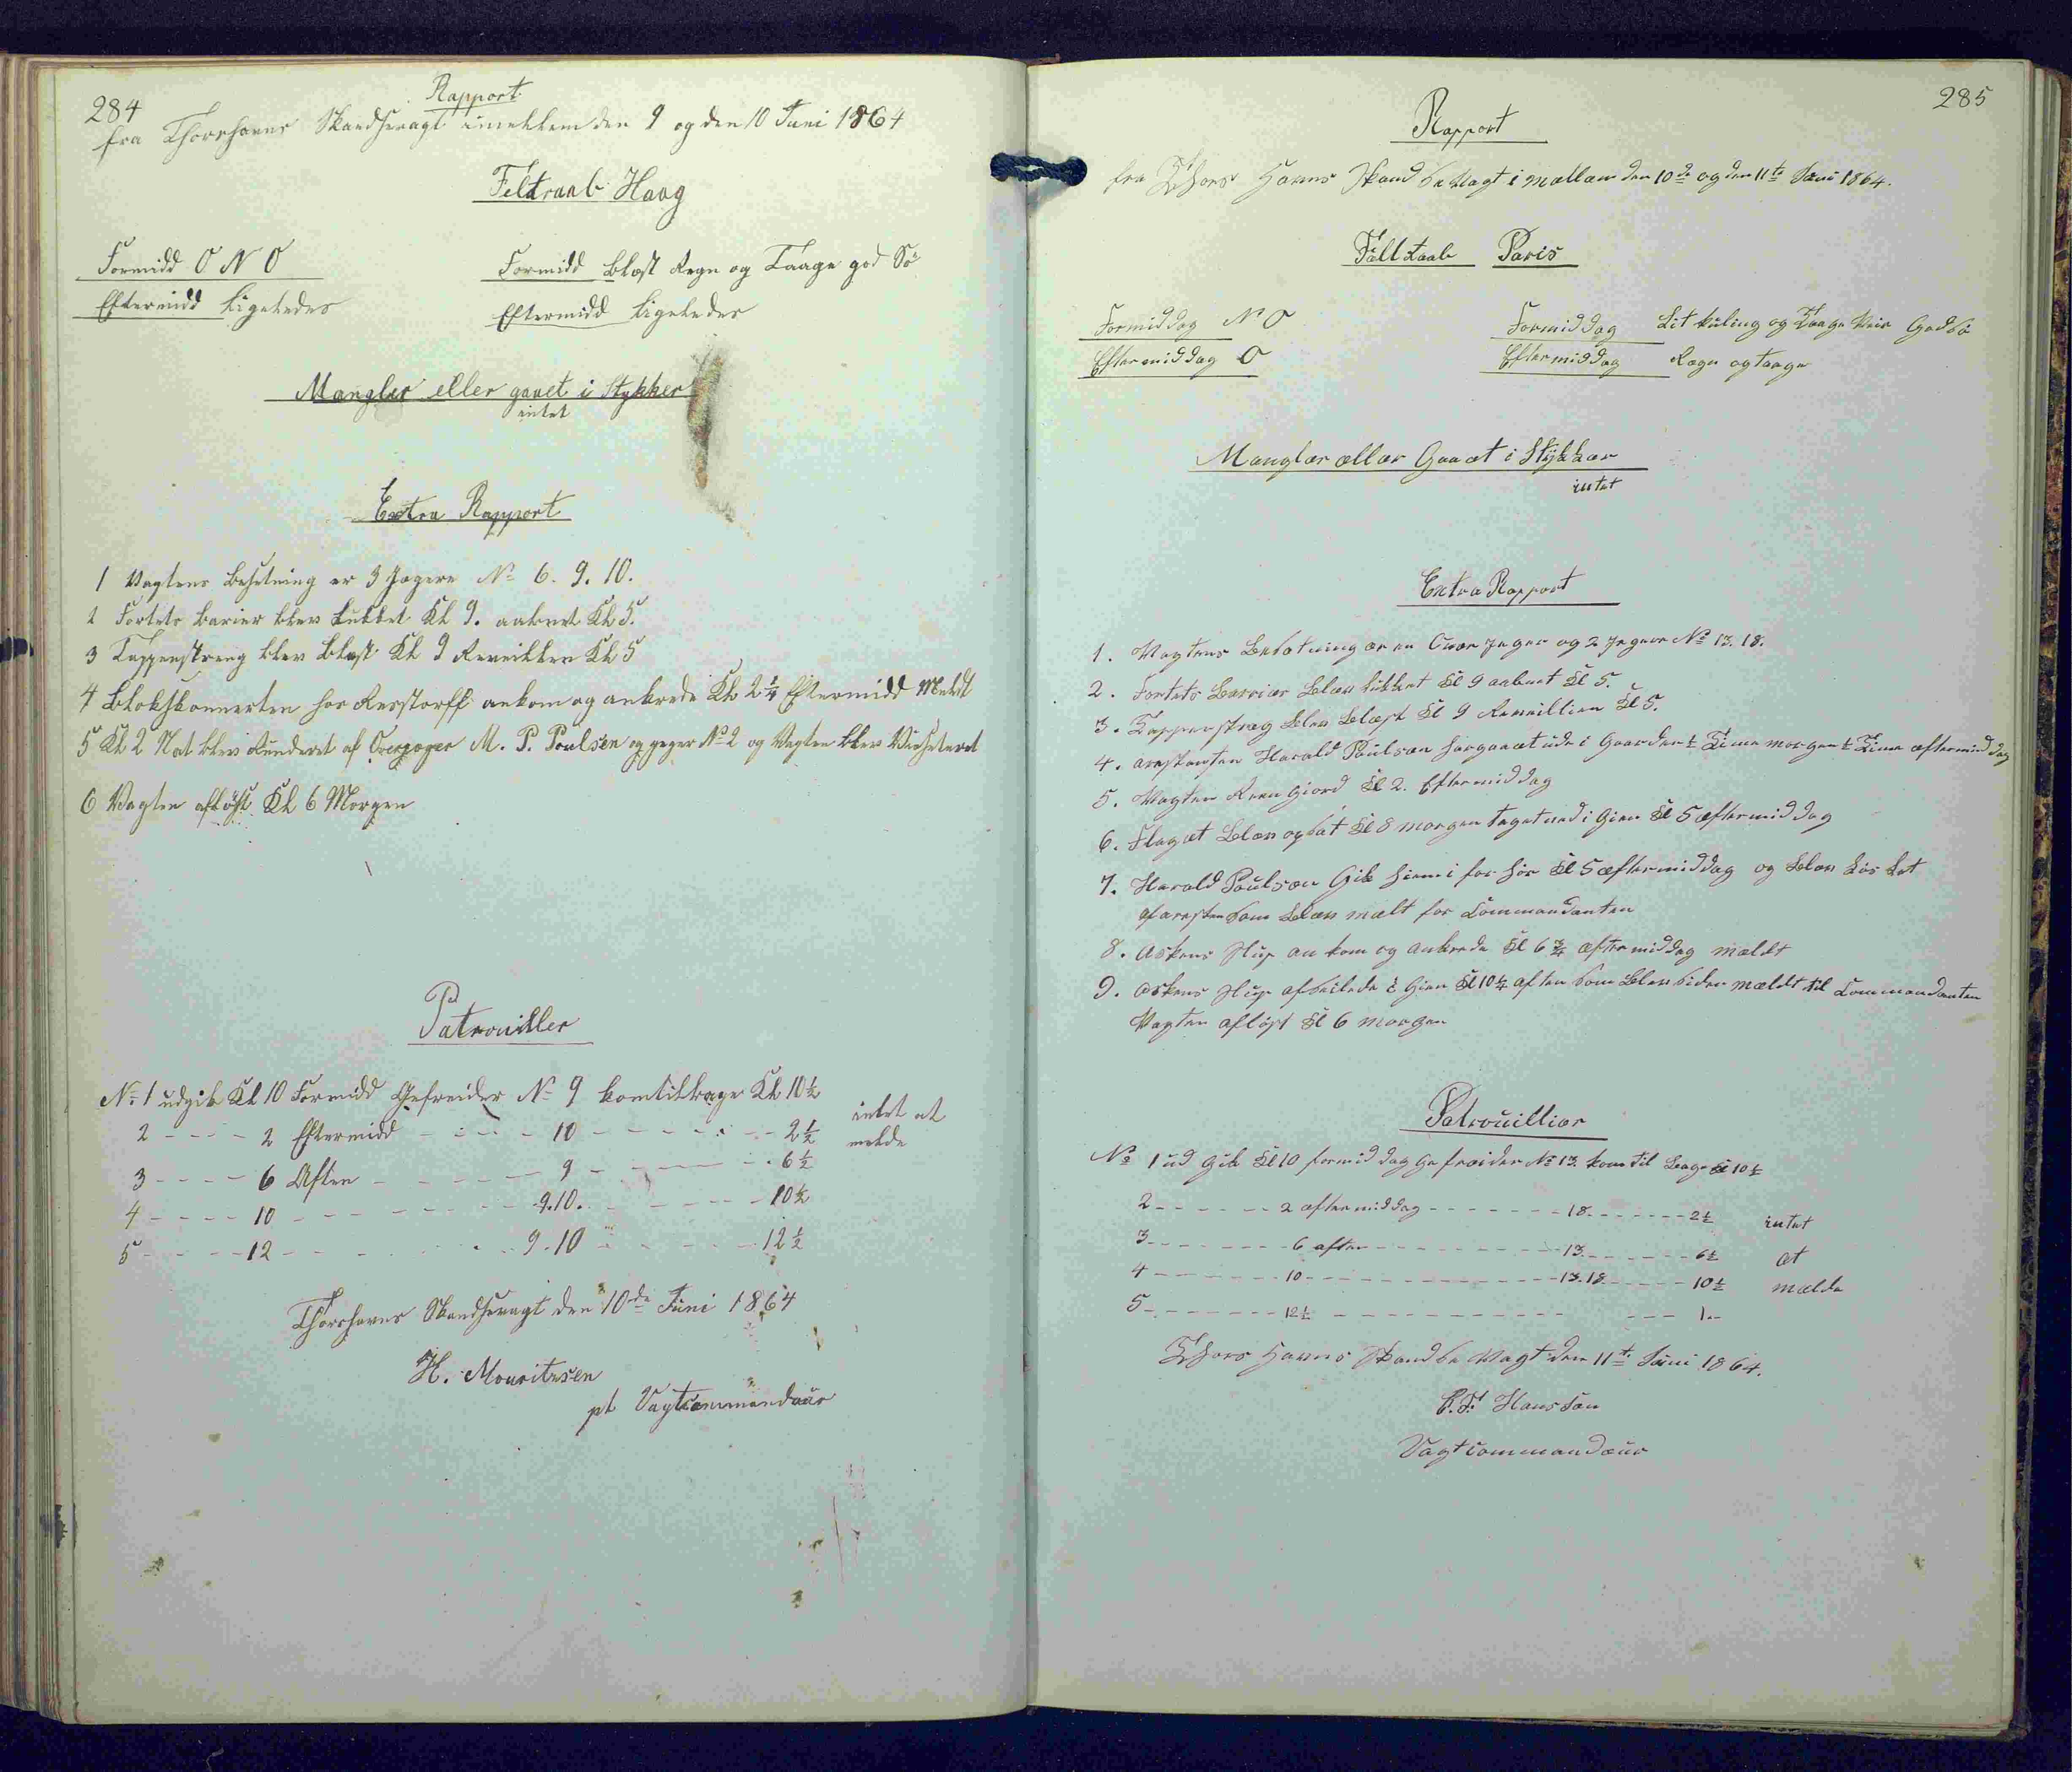 284
Rapport
fra Thorshavns Skandsevagt imellem den 9 og den 10 Juni 1864
Feltraab Haag
Formidd O N O
Formidd Blæst Regn og Taage god Sö
Eftermidd ligeledes
Eftermidd ligeledes
Mangler eller gaaet i Stykker
intet
Extra Rapport
1 Vagtens Besetning er 3 Jægere No 6. 9. 10.
2 Fortets Barier blev lukket Kl 9. aabnet Kl 5.
3 Tappenstreng blev blæst Kl 9 Reveillen Kl 5
4 Blokskonnerten hos Restorff ankom og ankrede Kl 2 1/4 Eftermidd Meldt
5 Kl 2 Nat blev Runderet af Overjæger M. P. Poulsen og jæger No 2 og Vagten blev Visiteret
6 Vagten aflöst Kl 6 Morgen
Patrouiller
No 1 udgik Kl 10 Formidd Gefreider No 9 kom tilbage Kl 10 1/2
2 - - - - 2 Eftermidd - - - - 10 - - - - - - 2 1/2 intet at
3 - - - - 6 Aften - - - - - 9 - - - - - 6 1/2 melde
4 - - - - 10 - - - - - - - 9.10. - - - - 10 1/2
5 - - - - 12 - - - - - - 9.10 - - - - 12 1/2
Thorshavns Skandsevagt den 10de Juni 1864
H. Mouritzsen
pt Vagtcommandeur
285
Rapport
fra Thors Havns Skandse Vagt i mællem den 10de og den 11te Juni 1864.
Fælt Raab Paris
Formiddag N O
Formiddag Lit kuling og Taage Veir God Sö
Eftermiddag O
Eftermiddag Rægn og taage
Manglær ællær Gaaæt i Stÿkkær
intet
Extra Rapport
1. Vagtens Besætning ær en Overjæger og 2 Jægere No 13. 18.
2. Fortets Barriær blæv lukket Kl 9 aabnet Kl 5.
3. Tappenstræg blev blæst Kl 9 Reveillien Kl 5.
4. arestanten Harald Poulsæn har gaaæt ude i Gaarden 1/2 Time morgen 1/2 Time æftermiddag
5. Vagten Reen Giord Kl 2. Eftermiddag
6. Flagæt blæv opsat Kl 8 morgen taget ned i Gien Kl 5 æftermiddag
7. Harald Poulsæn Gik hiem i forhör Kl 5 æftermiddag og blæv Lös Lat
af aresten som blæv mælt for Commandanten
8. Askens Slup ankom og ankrede Kl 6 3/4 æftermiddag mældt
9. Askens Slup afseilede i Gien Kl 10 1/2 aften som blev siden mældt til Commandanten
Vagten aflöst Kl 6 morgen
Patrouilliær
No 1 ud gik Kl 10 formiddag Gefreider No 13. kom til bage Kl 10 1/2
2 - - - - - - 2 æftermiddag - - - - - - - 18. - - - - - - 2 1/2 intet
3 - - - - - - - 6 aften - - - - - - - - - 13. - - - - - - 6 1/2 at
4 - - - - - - - 10 - - - - - - - - - - - 13.18. - - - - - 10 1/2 mælde
5 - - - - - - - 12 1/2 - - - - - - - - - - - - - - 1. -
Thors Havns Skandse Vagt den 11te Juni 1864.
Hanssæn
Vagtcommandæur